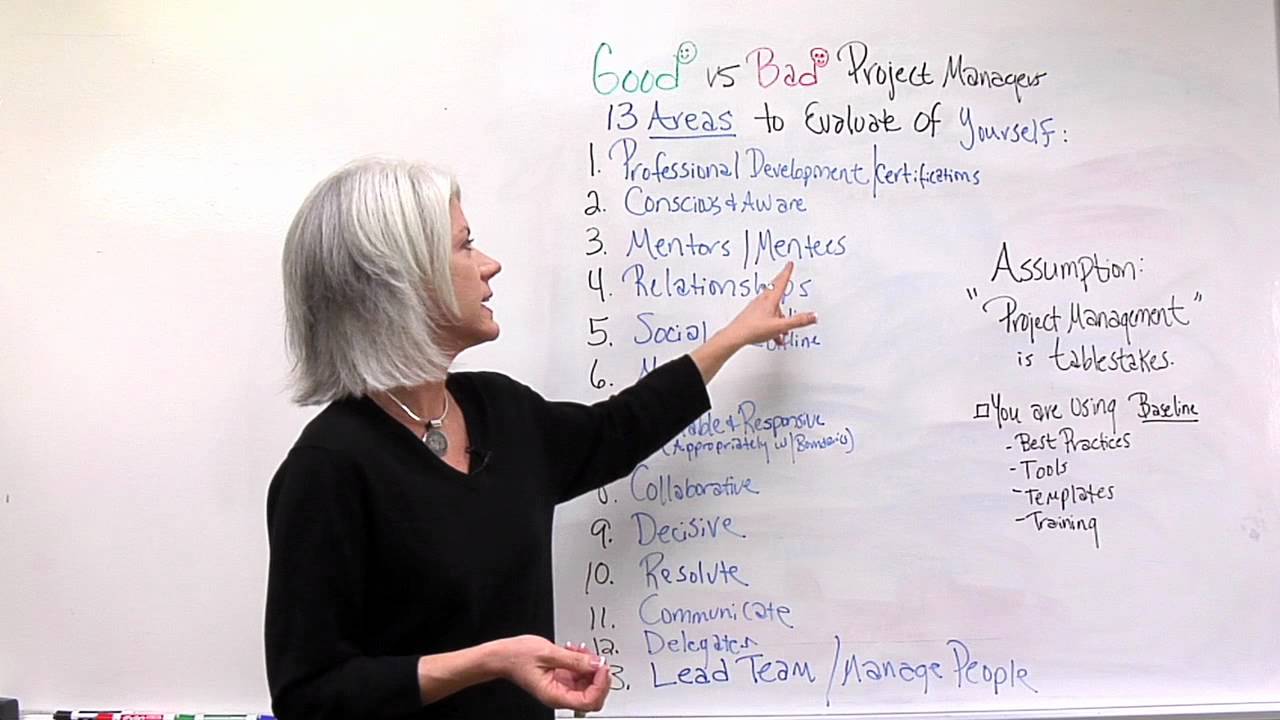 Good vs Bad Project Managers
13 Areas to Evaluate of Yourself:
1. Professional Development/Certifications
2. Conscious & Aware
3. Mentors / Mentees
4. Relationships
5. Social
offline
6.
& Responsive
(Appropriately w/
8. Collaborative
9. Decisive
10. Resolute
11. Communicate
12. Delegates
3. Lead Team / Manage People
Assumption:
"Project Management"
is tablestakes.
You are using Baseline
- Best Practices
- Tools
- Templates
- Training